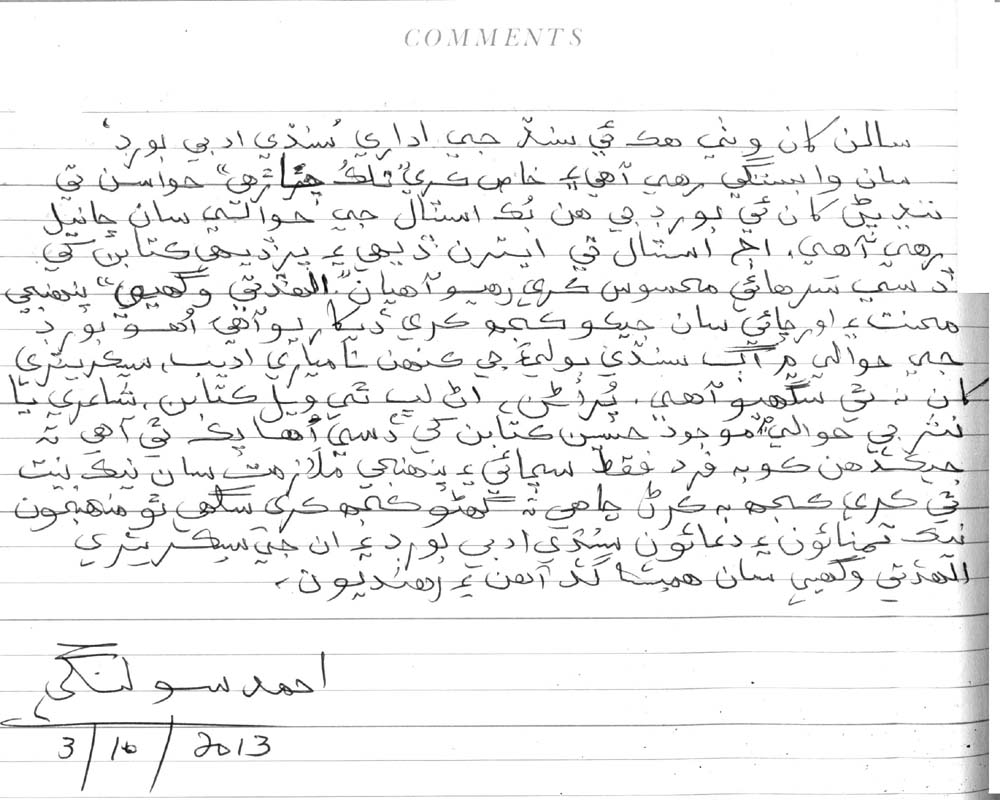 COMMENTS
سالن کان وٺي هڪ ئي سنڌ جي اداري سُنڌي ادبي بورڊ،
سان وابستگي رهي آهي ۽ خاص ڪري حواسن تي
ننڍپڻ کان ئي بورڊ جي هن بُڪ اسٽال جي حوالي سان ڄاتل
رهي آهي. اڄ اسٽال تي ايترن ڏيهي ۽ پرڏيهي ڪتابن کي
ڏسي سرهائي محسوس ڪري رهيو آهيان “الهڏتي وگهيي” پنهنجي
محنت ۽ اورچائي سان جيڪو ڪجهه ڪري ڏيکاريو آهي اُهو بورڊ
جي حوالي ۾ اڳ سنڌي ٻوليءَ جي ڪنهن نامياري اديب، سيڪريٽري
کان نه ٿي سگهيو آهي. پُراڻن، اڻ لڀ ٿي ويل ڪتابن، شاعري يا
نثر جي حوالي موجود حُسن ڪتابن کي ڏسي اُها پڪ ٿي آهي ته
جيڪڏهن ڪو به فرد فقط سچائي ۽ پنهنجي ملازمت سان نيڪ نيت
ٿي ڪري ڪجهه به ڪرڻ چاهي ته گهڻو ڪجهه ڪري سگهي ٿو منهنجون
نيڪ تمنائون ۽ دعائون سنڌي ادبي بورڊ ۽ ان جي سيڪريٽري
الهڏتي وگهيي سان هميشا گڏ آهن ۽ رهنديون.
احمد سولنگي
3/10/2013